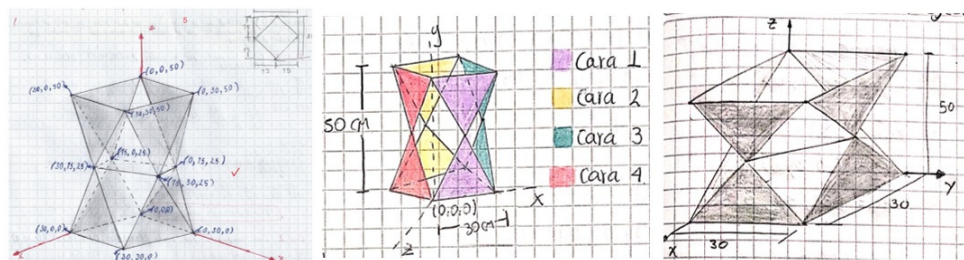 5
15 15
z
(0,0,50)
(30,0,50)
(0,30,50)
(30,30,50)
(15,0,25)
(30,15,25)
(0,15,25)
(15,30,25)
(0,0,0)
(30,0,0)
(0,30,0)
(30,30,0)
y
50CM
Cara 1
Cara 2
Cara 3
Cara 4
x
(0,0,0)
30CM
z
z
50
y
30
30
x